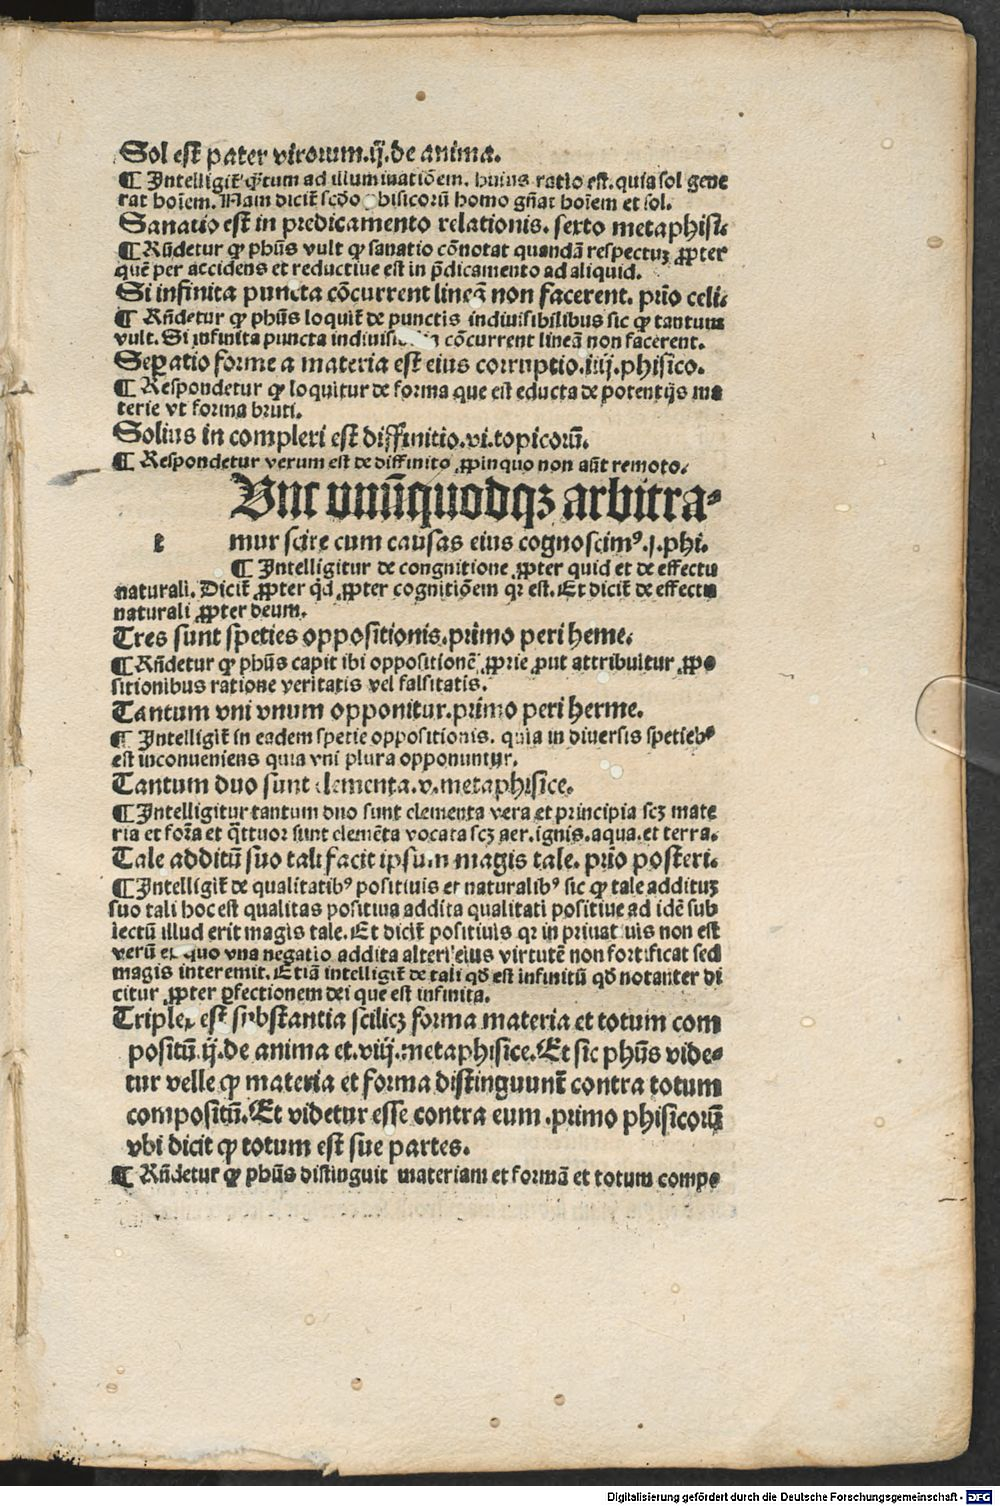 Sol est pater virorum.ij.de anima.
¶ Intelligit̄ q̄tum ad illuminatiōem. huius ratio est. quia sol gene
rat hoīem. Nam dicit̄ scd̄o phisicorū homo gn̄at hoīem et sol.
Sanatio est in predicamento relationis. sexto metaphisi.
¶ Rn̄detur ꝙ phūs vult ꝙ sanatio cōnotat quandā respectuꝫ ꝓpter
quē per accidens et reductiue est in p̄dicamento ad aliquid.
Si infinita puncta cōcurrent lineā non facerent. prīo celi.
¶ Rn̄detur ꝙ phūs loquit̄ de punctis indiuisibilibus sic ꝙ tantum
vult. Si infinita puncta indiuisi cōcurrent lineā non facerent.
Seꝑatio forme a materia est eius corruptio.iiij.phisico.
¶ Respondetur ꝙ loquitur de forma que est educta de potentijs ma
terie vt forma bruti.
Solius in compleri est diffinitio.vi.topicorū.
¶ Respondetur verum est de diffinito ꝓpinquo non aūt remoto.
Vnc vnūquodqꝫ arbitra-
t mur scire cum causas eius cognoscimꝰ.j.phi.
¶ Intelligitur de congnitione ꝓpter quid et de effectu
naturali. Dicit̄ ꝓpter qd̄ ꝓpter cognitiōem qr est. Et dicit̄ de effectu
naturali ꝓpter deum.
Tres sunt speties oppositionis.primo peri heme.
¶ Rn̄detur ꝙ phūs capit ibi oppositionē ꝓprie ꝓut attribuitur ꝓpo
sitionibus ratione veritatis vel falsitatis.
Tantum vni vnum opponitur.primo peri herme.
¶ Intelligit̄ in eadem spetie oppositionis. quia in diuersis spetiebꝰ
est inconueniens quia vni plura opponuntur.
Tantum duo sunt elementa.v.metaphisice.
¶ Intelligitur tantum duo sunt elementa vera et principia scꝫ mate
ria et forma et q̄ttuor sunt elemēta vocata scꝫ aer.ignis.aqua.et terra.
Tale additū suo tali facit ipsum magis tale. prīo posteri.
¶ Intelligit̄ de qualitatibꝰ positiuis et naturalibꝰ sic ꝙ tale addituꝫ
suo tali hoc est qualitas positiua addita qualitati positiue ad idē sub
iectū illud erit magis tale. Et dicit̄ positiuis qr in priuatiuis non est
verū ex quo vna negatio addita alteri eius virtutē non fortificat sed
magis interemit. Etiā intelligit̄ de tali qd̄ est infinitū qd̄ notanter di
citur ꝓpter ꝑfectionem dei que est infinita.
Triplex est substantia scilicꝫ forma materia et totum com
positū.ij.de anima et.viij.metaphisice.Et sic phūs vide-
tur velle ꝙ materia et forma distinguunt̄ contra totum
compositū.Et videtur esse contra eum.primo phisicorū
vbi dicit ꝙ totum est sue partes.
¶ Rn̄detur ꝙ phūs distinguit materiam et formā et totum compo
Digitalisierung gefördert durch die Deutsche Forschungsgemeinschaft - DFG